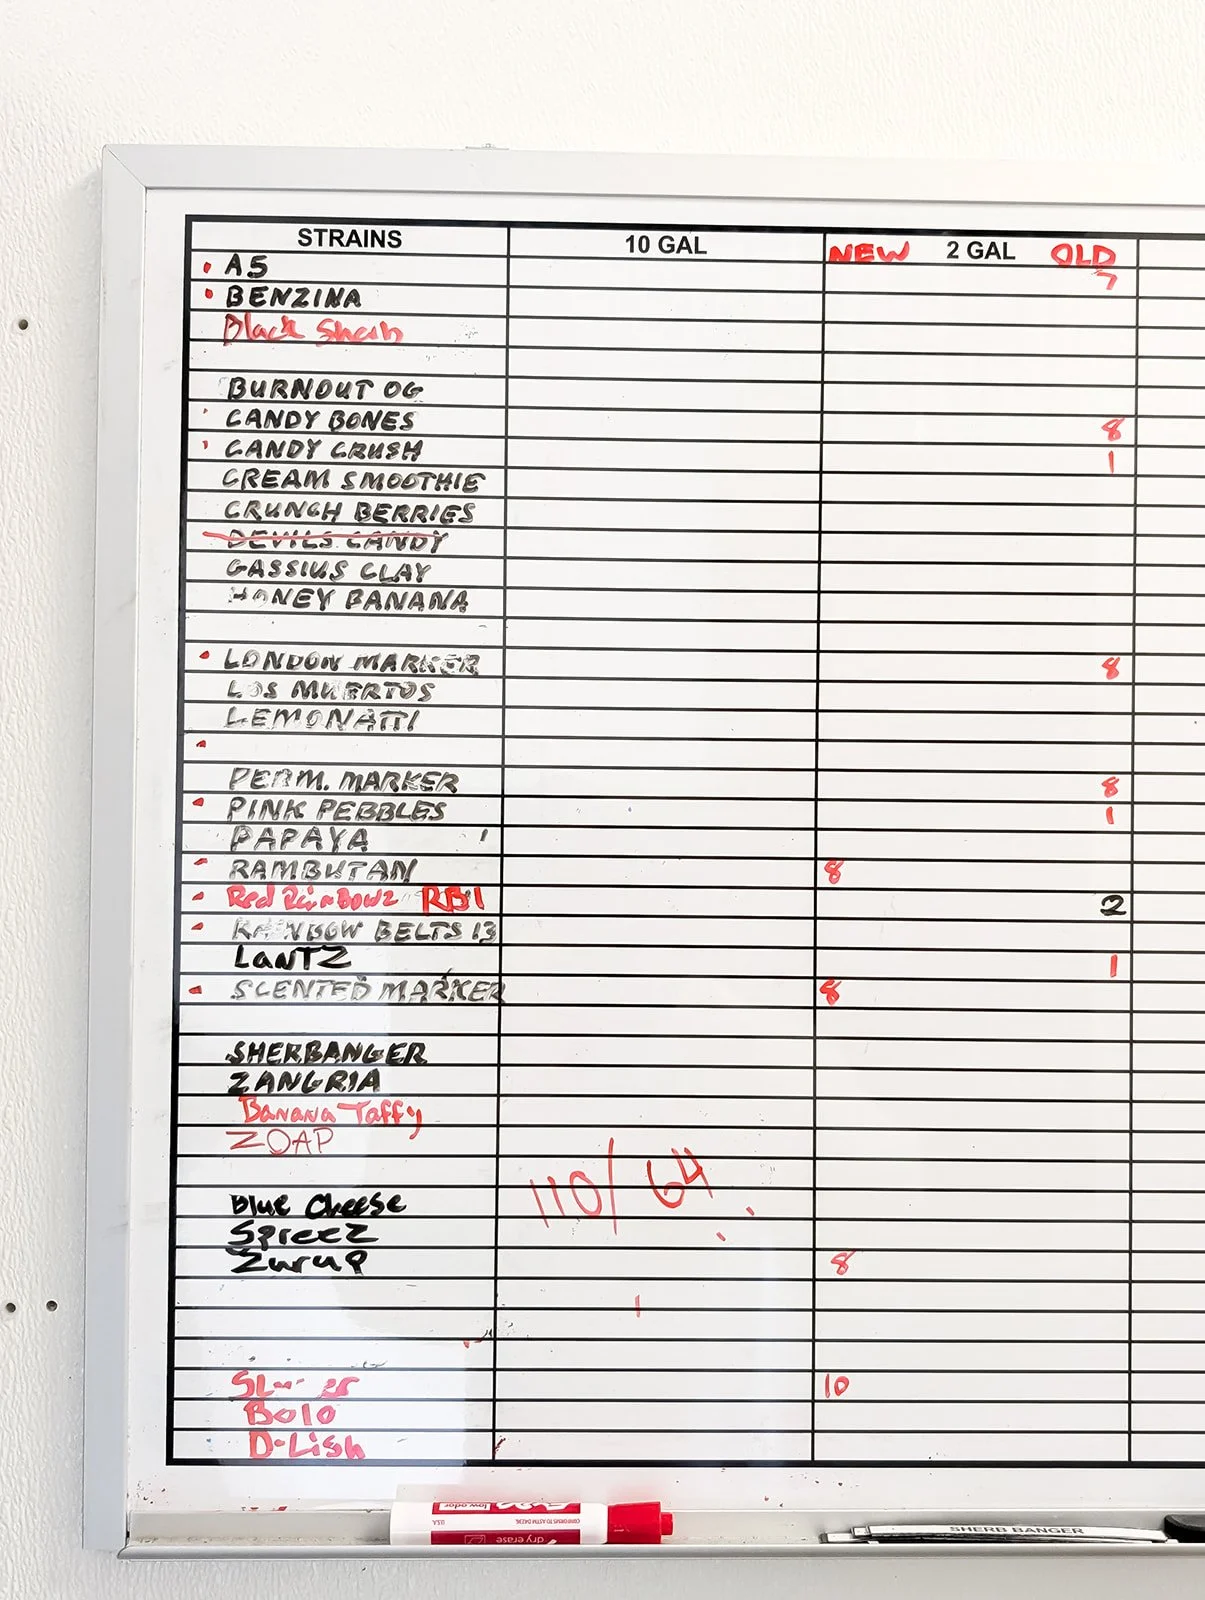 STRAINS 10 GAL NEW 2 GAL OLD
A5 7
BENZINA
Black
BURNOUT OG
CANDY BONES 8
CANDY CRUSH 1
CREAM SMOOTHIE
CRUNCH BERRIES
DEVILS CANDY
GASSIUS CLAY
HONEY BANANA
LONDON MARKER 8
LOS MUERTOS
LEMONATTI
PERM. MARKER 8
PINK PEBBLES 1
PAPAYA
RAMBUTAN 8
Red RainBowz RB1 2
RAINBOW BELTS 13
LANTZ 1
SCENTED MARKER 8
SHERBANGER
ZANGRIA
Banana Taffy
ZOAP
110/64
Blue Cheese
Spreez
Zurup 8
10
Bolo
D-Lish
low odor
CONFORMS TO ASTM D4236
U.S.A.
dry erase
SHERB BANGER